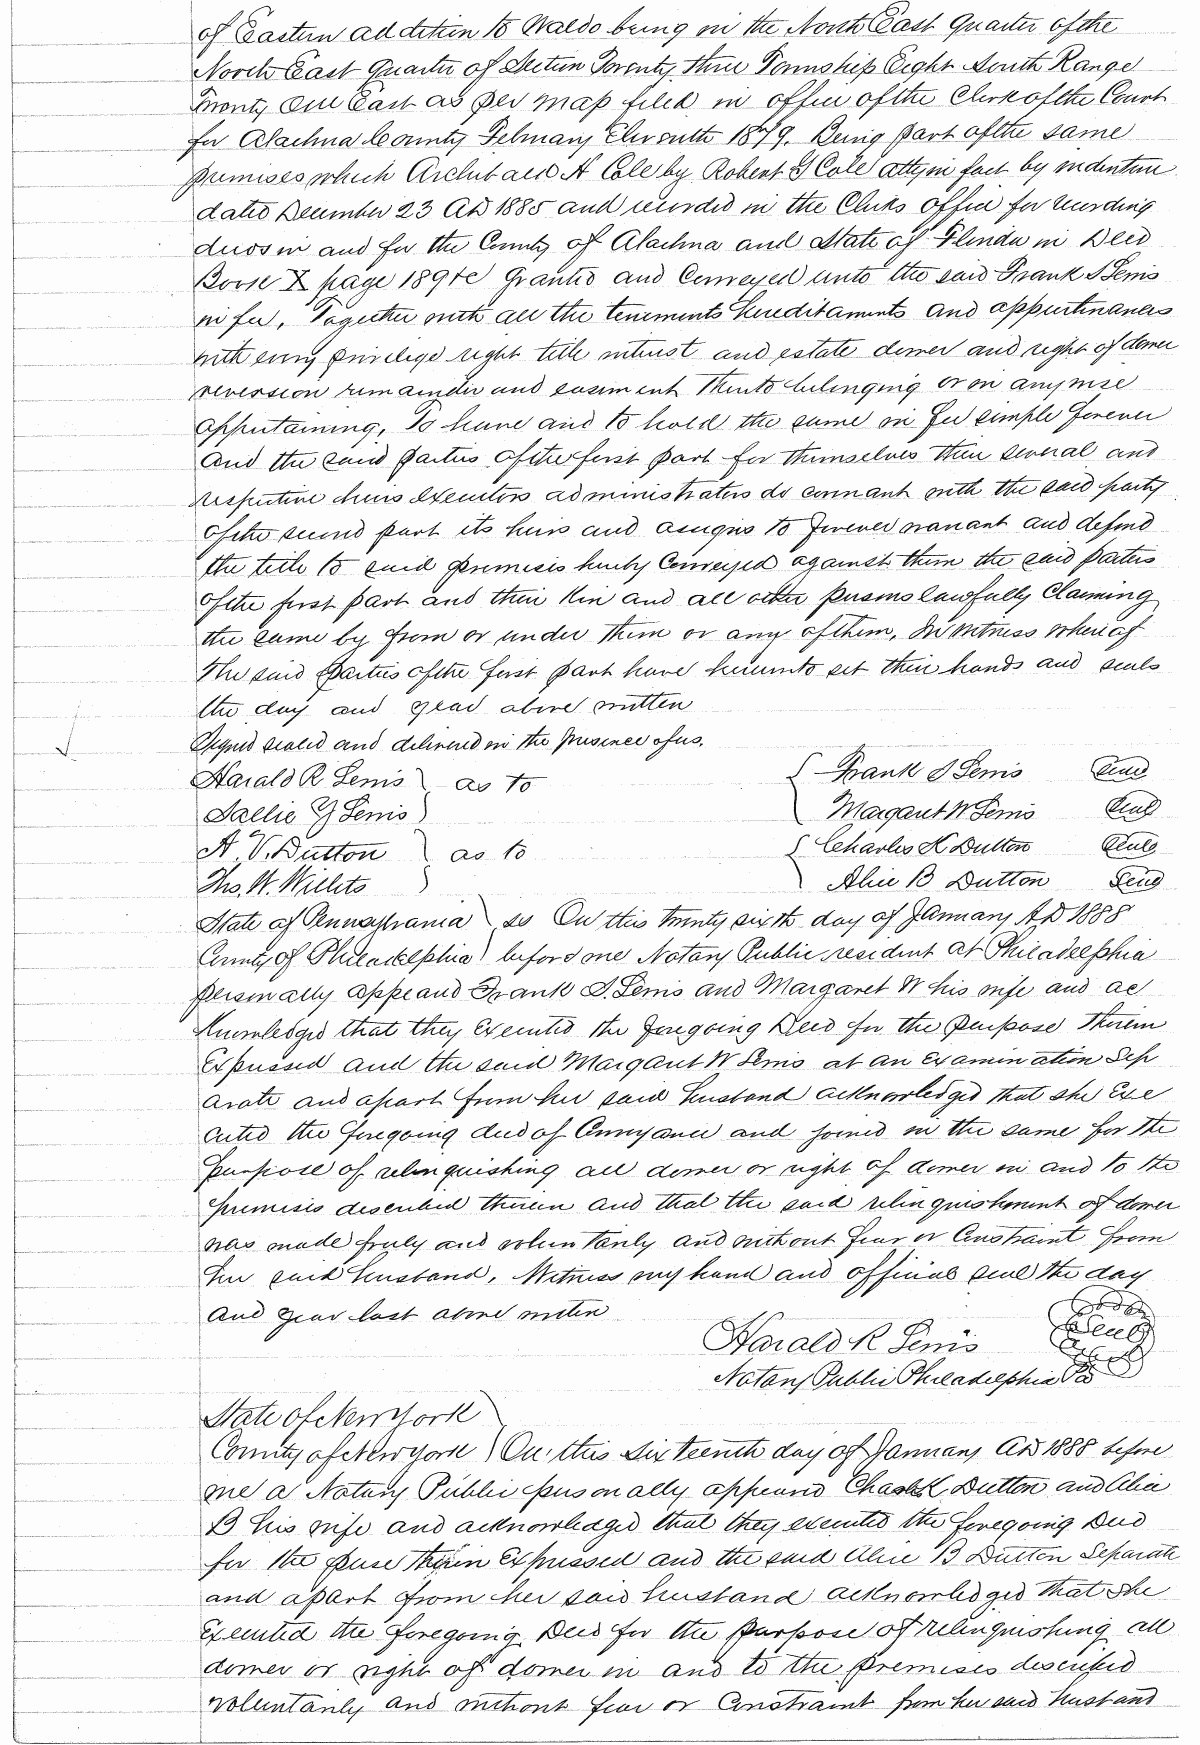 of Eastern addition to Waldo being in the North East Quarter of the
North East Quarter of Section Twenty three Township Eight South Range
Twenty One East as per map filed in office of the Clerk of the Court
for Alachua County February Eleventh 1879. Being part of the same
premises which Archibald A Cole by Robert G Cole atty in fact by indenture
dated December 23 AD 1885 and recorded in the Clerks office for recording
deeds in and for the County of Alachua and State of Florida in Deed
Book X page 189 &c Granted and Conveyed unto the said Frank S Lewis
in fee, Together with all the tenements hereditaments and appurtenances
with every privilege right title interest and estate dower and right of dower
reversion remainder and easement thereto belonging or in anywise
appertaining, To have and to hold the same in fee simple forever
And the said parties of the first part for themselves their several and
respective heirs executors administrators do covenant with the said party
of the second part its heirs and assigns to forever warrant and defend
the title to said premises hereby Conveyed against them the said parties
of the first part and their Kin and all other persons lawfully Claiming
the same by from or under them or any of them, In witness whereof
The said parties of the first part have hereunto set their hands and seals
the day and year above written
Signed sealed and delivered in the presence of us.
Harald R Lewis ) as to { Frank S Lewis Seal
Sallie Y Lewis ) Margaret W Lewis Seal
A. V. Dutton ) as to { Charles K Dutton Seal
Thos. W. Willits ) Alice B Dutton Seal
State of Pennsylvania ) ss On this twenty sixth day of January AD 1888
County of Philadelphia ) before me Notary Public resident at Philadelphia
personally appeared Frank S. Lewis and Margaret W his wife and ac
knowledged that they executed the foregoing Deed for the purpose therein
expressed and the said Margaret W Lewis at an examination sep
arate and apart from her said husband acknowledged that she exe
cuted the foregoing deed of Conveyance and joined in the same for the
purpose of relinquishing all dower or right of dower in and to the
premises described therein and that the said relinquishment of dower
was made freely and voluntarily and without fear or Constraint from
her said husband. Witness my hand and official seal the day
and year last above written
Harald R Lewis Seal
Notary Public Philadelphia Pa
State of New York )
County of New York ) On this Sixteenth day of January AD 1888 before
me a Notary Public personally appeared Chas K Dutton and Alice
B his wife and acknowledged that they executed the foregoing Deed
for the puse therein expressed and the said Alice B Dutton Separate
and apart from her said husband acknowledged that she
executed the foregoing Deed for the purpose of relinquishing all
dower or right of dower in and to the premises described
voluntarily and without fear or Constraint from her said husband